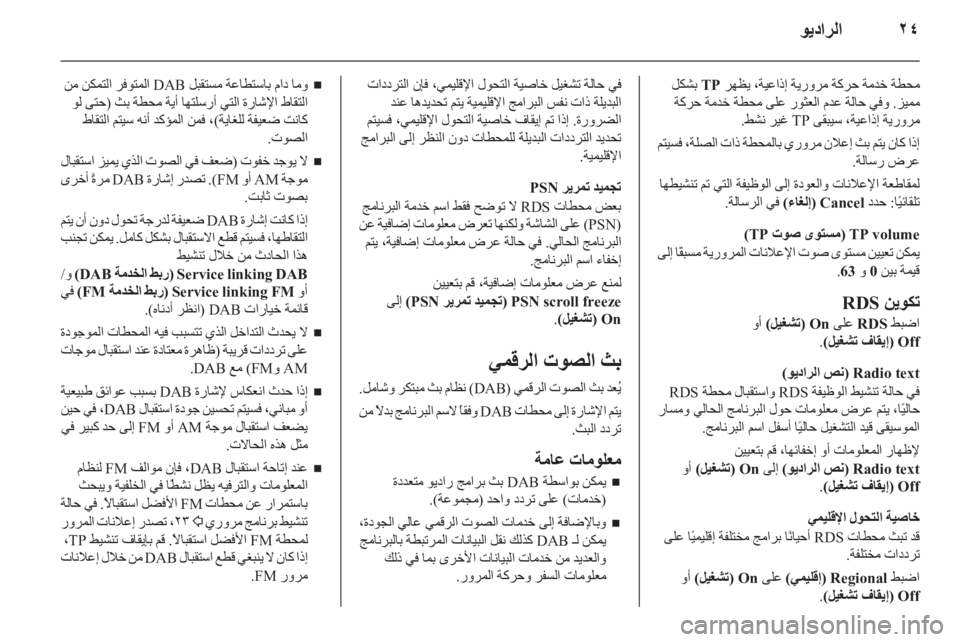 ٢٤
الراديو
محطة خدمة حركة مرورية إذاعية، يظهر TP بشكل
مميز. وفي حالة عدم العثور على محطة خدمة حركة
مرورية إذاعية، سيبقى TP غير نشط.
إذا كان يتم بث إعلان مروري بالمحطة ذات الصلة، فسيتم
عرض رسالة.
لمقاطعة الإعلانات والعودة إلى الوظيفة التي تم تنشيطها
تلقائيًا: حدد Cancel (إلغاء) في الرسالة.
TP volume (مستوى صوت TP)
يمكن تعيين مستوى صوت الإعلانات المرورية مسبقًا إلى
قيمة بين 0 و 63.
تكوين RDS
اضبط RDS على On (تشغيل) أو
Off (إيقاف تشغيل).
Radio text (نص راديو)
في حالة تنشيط الوظيفة RDS واستقبال محطة RDS
حاليًا، يتم عرض معلومات حول البرنامج الحالي ومسار
الموسيقى قيد التشغيل حاليًا أسفل اسم البرنامج.
لإظهار المعلومات أو إخفائها، قم بتعيين
Radio text (نص راديو) إلى On (تشغيل) أو
Off (إيقاف تشغيل).
خاصية التحول الإقليمي
قد تبث محطات RDS أحيانًا برامج مختلفة إقليميًا على
ترددات مختلفة.
اضبط Regional (إقليمي) على On (تشغيل) أو
Off (إيقاف تشغيل).
في حالة تشغيل خاصية التحول الإقليمي، فإن الترددات
البديلة ذات نفس البرامج الإقليمية يتم تحديدها عند
الضرورة. إذا تم إيقاف خاصية التحول الإقليمي، فسيتم
تحديد الترددات البديلة للمحطات دون النظر إلى البرامج
الإقليمية.
تجميد تمرير PSN
بعض محطات RDS لا توضح فقط اسم خدمة البرنامج
(PSN) على الشاشة ولكنها تعرض معلومات إضافية عن
البرنامج الحالي. في حالة عرض معلومات إضافية، يتم
إخفاء اسم البرنامج.
لمنع عرض معلومات إضافية، قم بتعيين
PSN scroll freeze (تجميد تمرير PSN) إلى
On (تشغيل).
بث الصوت الرقمي
يُعد بث الصوت الرقمي (DAB) نظام بث مبتكر وشامل.
يتم الإشارة إلى محطات DAB وفقًا لاسم البرنامج بدلاً من
تردد البث.
معلومات عامة
■ يمكن بواسطة DAB بث برامج راديو متعددة
(خدمات) على تردد واحد (مجموعة).
■ وبالإضافة إلى خدمات الصوت الرقمي عالي الجودة،
يمكن لـ DAB كذلك نقل البيانات المرتبطة بالبرنامج
والعديد من خدمات البيانات الأخرى بما في ذلك
معلومات السفر وحركة المرور.
■ وما دام باستطاعة مستقبل DAB المتوفر التمكن من
التقاط الإشارة التي أرسلتها أية محطة بث (حتى ولو
كانت ضعيفة للغاية)، فمن المؤكد أنه سيتم التقاط
الصوت.
■ لا يوجد خفوت (ضعف في الصوت الذي يميز استقبال
موجة AM أو FM). تصدر إشارة DAB مرةً أخرى
بصوت ثابت.
إذا كانت إشارة DAB ضعيفة لدرجة تحول دون أن يتم
التقاطها، فسيتم قطع الاستقبال بشكل كامل. يمكن تجنب
هذا الحادث من خلال تنشيط
Service linking DAB (ربط الخدمة DAB) و/
أو Service linking FM (ربط الخدمة FM) في
قائمة خيارات DAB (انظر أدناه).
■ لا يحدث التداخل الذي تتسبب فيه المحطات الموجودة
على ترددات قريبة (ظاهرة معتادة عند استقبال موجات
AM وFM) مع DAB.
■ إذا حدث انعكاس لإشارة DAB بسبب عوائق طبيعية
أو مباني، فسيتم تحسين جودة استقبال DAB، في حين
يضعف استقبال موجة AM أو FM إلى حد كبير في
مثل هذه الحالات.
■ عند إتاحة استقبال DAB، فإن موالف FM لنظام
المعلومات والترفيه يظل نشطًا في الخلفية ويبحث
باستمرار عن محطات FM الأفضل استقبالاً. في حالة
تنشيط برنامج مروري ⇦ ٢٣، تصدر إعلانات المرور
لمحطة FM الأفضل استقبالاً. قم بإيقاف تنشيط TP،
إذا كان لا ينبغي قطع استقبال DAB من خلال إعلانات
مرور FM.